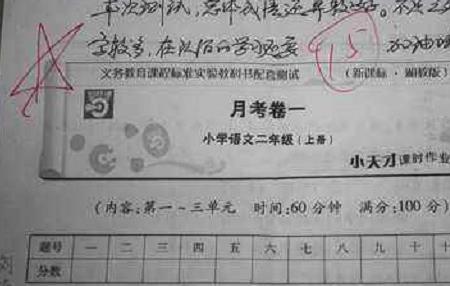 本次测试,总体成绩还
字较多,在以后的学习
15
义务教育课程标准实验教科书配套测试
(新课标·湘教版)
月考卷一
小学语文二年级(上册)
小天才课时作业
(内容:第一~三单元 时间:60分钟 满分:100分)
题号 一 二 三 四 五 六 七 八 九 十
分数